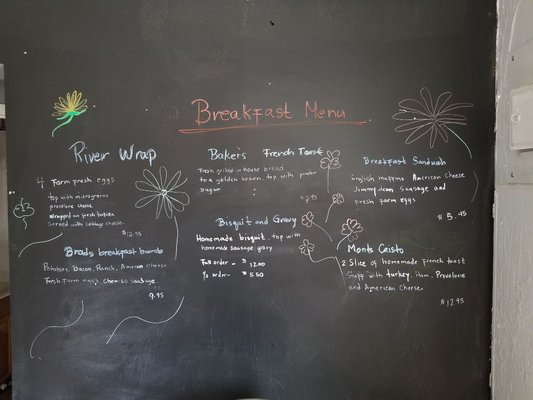 Breakfast Menu
River Wrap
4 Farm fresh eggs
top with microgreens
provolone cheese
wrapped in fresh
Served with cottage cheese
$12.95
Brads breakfast burrito
Potatoes, Bacon, Ranch, American cheese
Fresh Farm eggs sausage
9.95
Bakers French Toast
Fresh grilled in-house bread
to a golden brown, top with powder
sugar
Bisquit and Gravy
Homemade bisquit, top with
homemade sausage gravy
Full order - $ 12.00
1/2 order - $ 5.50
Breakfast Sandwich
English muffins American Cheese
Jimmy dean sausage and
Fresh farm eggs
$ 5.95
Monte Cristo
2 Slice of homemade French toast
with turkey, Ham, Provolone
and American Cheese.
$12.95